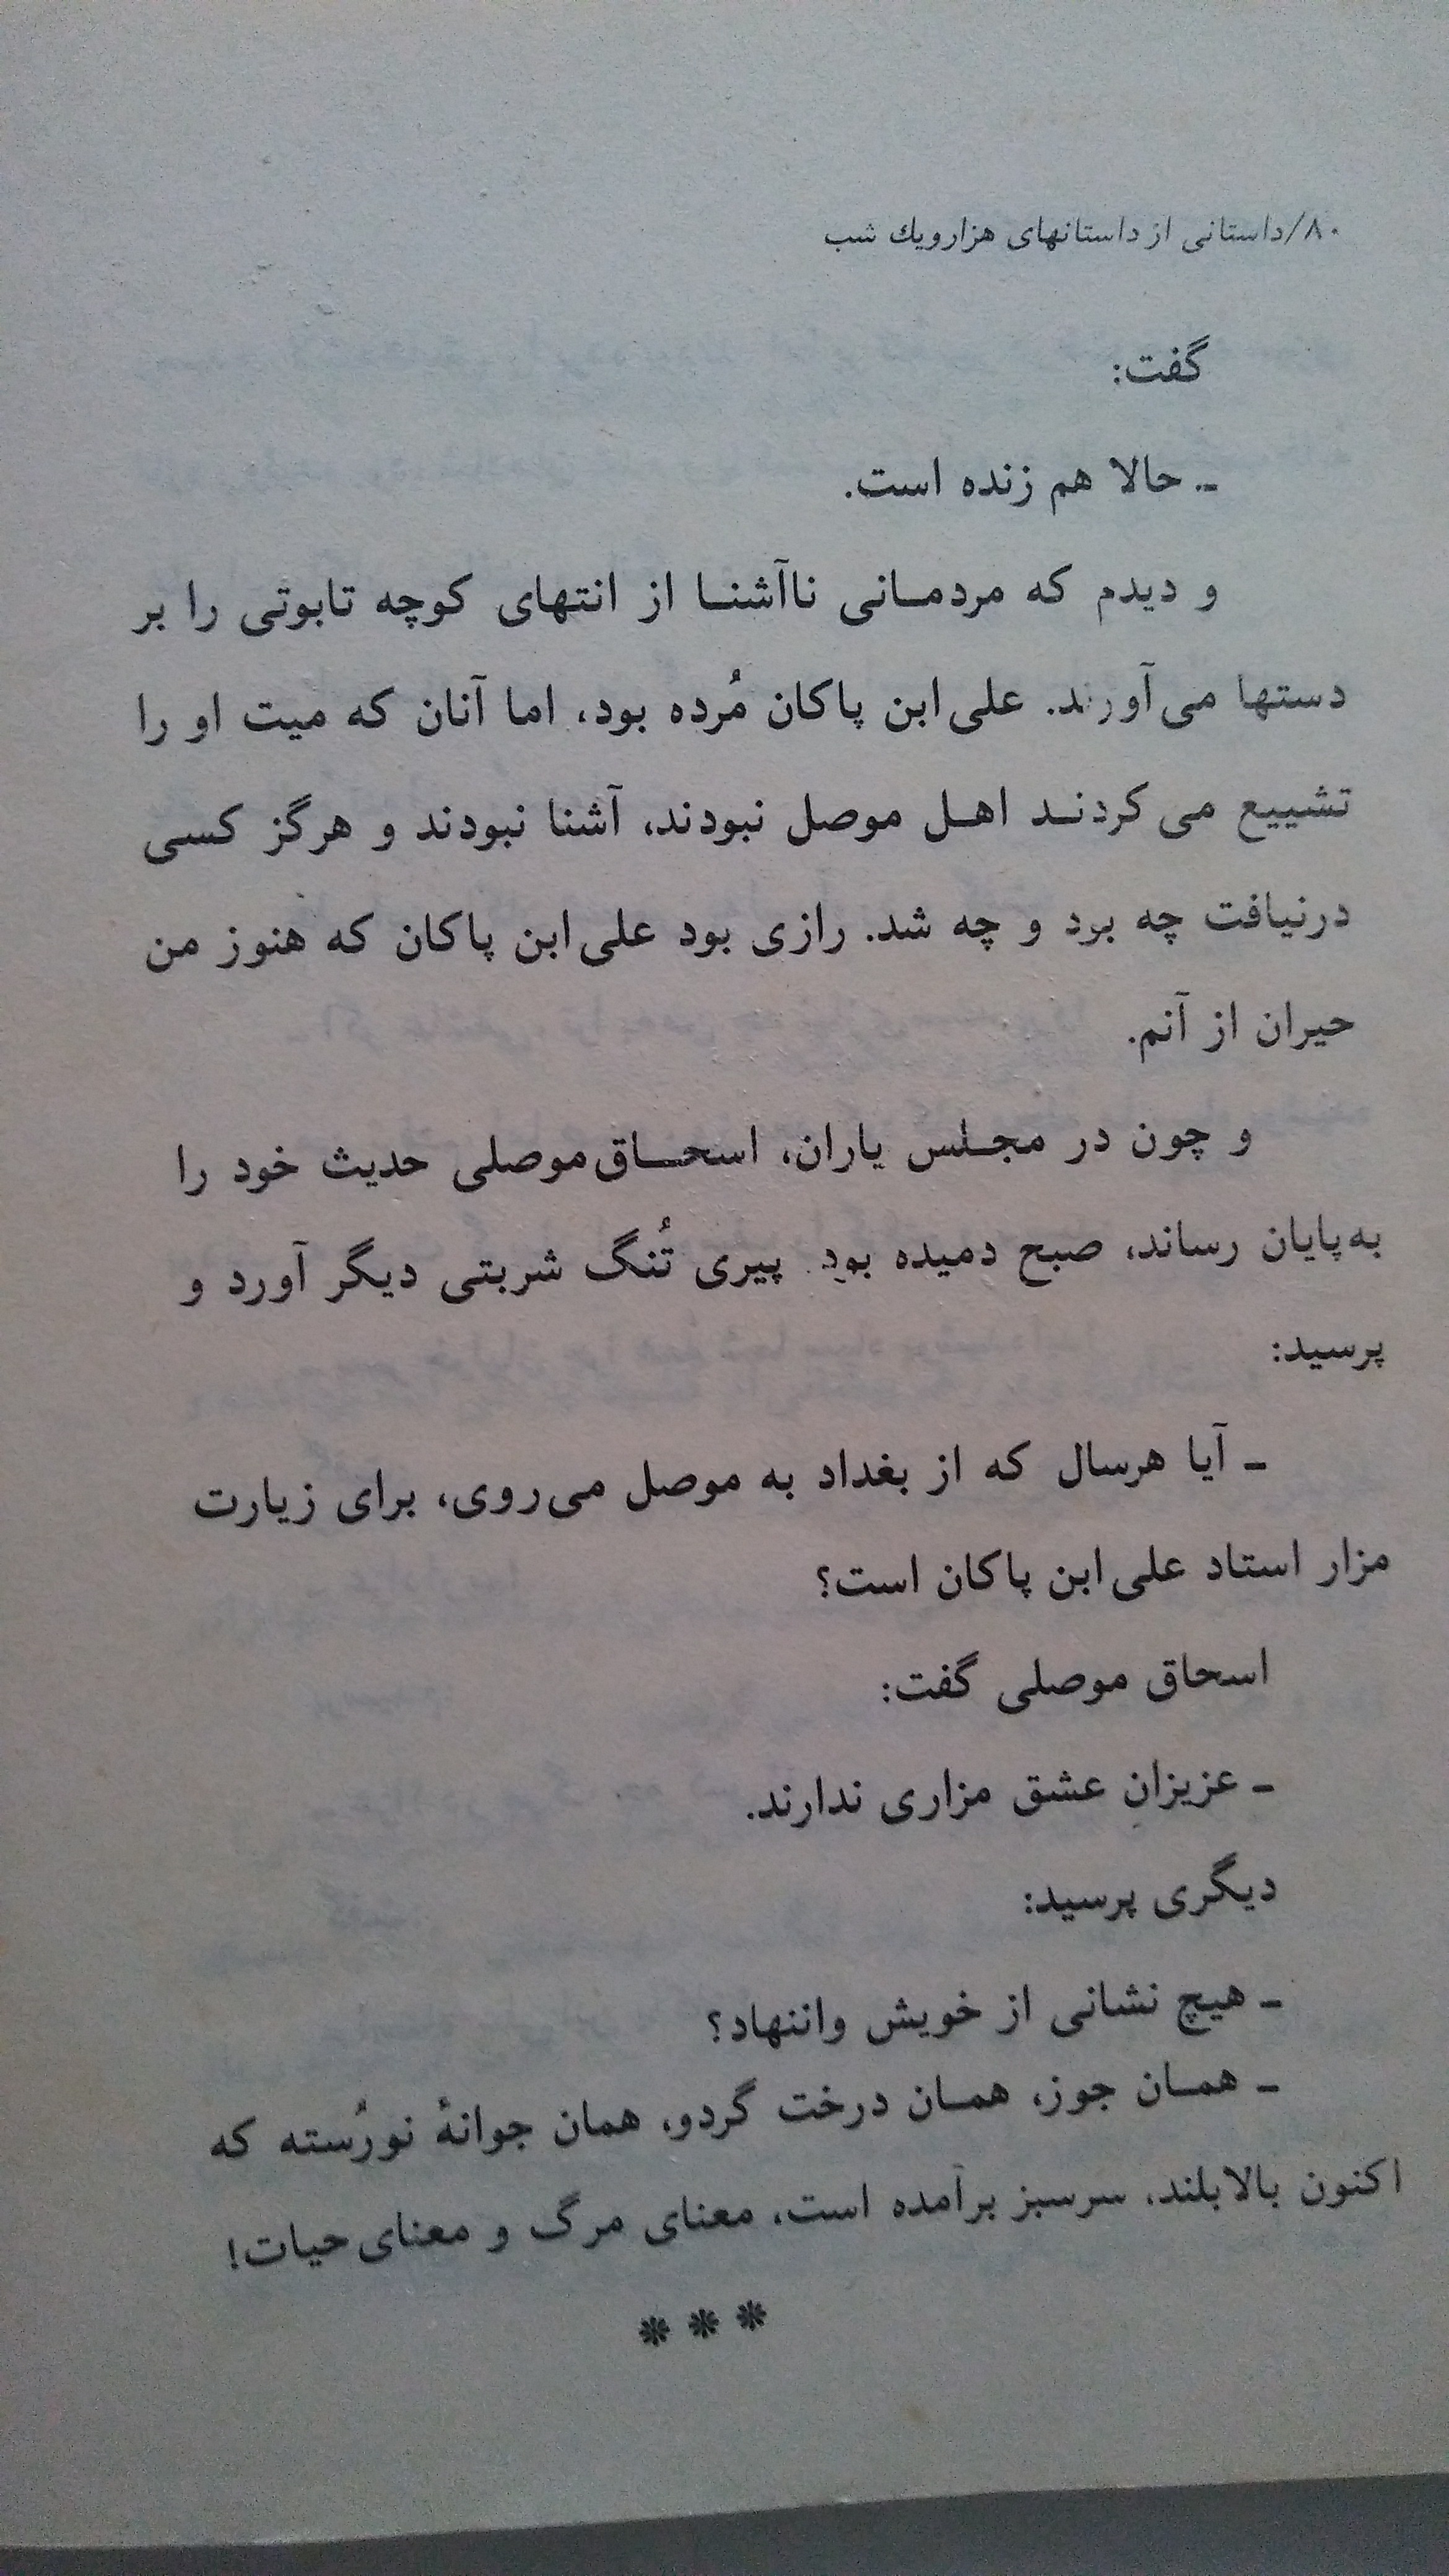 ۸۰/داستانی از داستانهای هزارويك شب
گفت:
ـ حالا هم زنده است.
و دیدم که مردمـانی ناآشنـا از انتهای کوچه تابوتی را بر
دستها می‌آورند. علی‌ابن پاکان مُرده بود، اما آنان که میت او را
تشییع می‌کردنـد اهـل موصل نبودند، آشنا نبودند و هرگز کسی
درنیافت چه برد و چه شد. رازی بود علی‌ابن پاکان که هنوز من
حیران از آنم.
و چون در مجـلس یاران، اسحـاق‌موصلی حدیث خود را
به‌پایان رساند، صبح دمیده بود. پیری تُنگ شربتی دیگر آورد و
پرسید:
ـ آیا هرسال که از بغداد به موصل می‌روی، برای زیارت
مزار استاد علی‌ابن پاکان است؟
اسحاق موصلی گفت:
ـ عزیزانِ عشق مزاری ندارند.
دیگری پرسید:
ـ هیچ نشانی از خویش واننهاد؟
ـ همـان جوز، همـان درخت گردو، همان جوانهٔ نورُسته که
اکنون بالابلند، سرسبز برآمده است، معنای مرگ و معنای‌حیات!
* * *